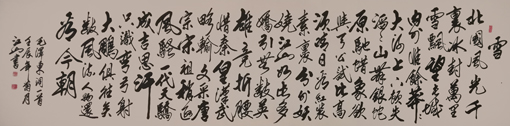 雪
北國風光千
里冰封萬里
雪飄望長城
内外惟餘莽莽
大河上下頓失
滔滔山舞銀蛇
原馳蠟象欲
與天公試比高
須晴日看紅裝
素裹分外妖
嬈江山如此多
嬌引無數英
雄競折腰
惜秦皇漢武
略輸文采唐
宗宋祖稍遜
風騷一代天驕
成吉思汗
只識彎弓射
大鵰俱往矣
數風流人物還
看今朝
毛澤東詞一首